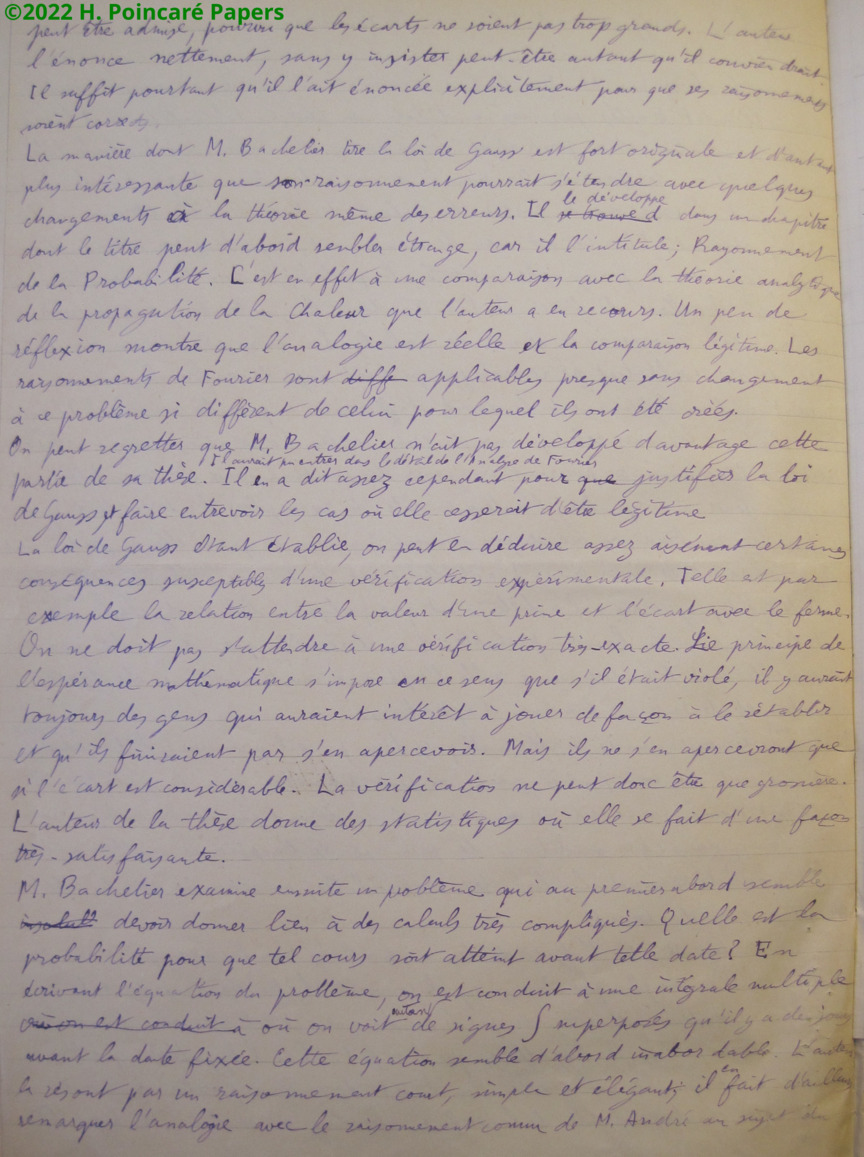 ©2022 H. Poincaré Papers
peut être admise, pourvu que les écarts ne soient pas trop grands. L'auteur
l'énonce nettement, sans y insister peut-être autant qu'il conviendrait.
Il suffit pourtant qu'il l'ait énoncée explicitement pour que ses raisonnements
soient corrects.
La manière dont M. Bachelier tire la loi de Gauss est fort originale et d'autant
plus intéressante que son raisonnement pourrait s'étendre avec quelques
changements à la théorie même des erreurs. Il le développe dans un chapitre
dont le titre peut d'abord sembler étrange, car il l'intitule; Rayonnement
de la Probabilité. C'est en effet à une comparaison avec la théorie analytique
de la propagation de la Chaleur que l'auteur a eu recours. Un peu de
réflexion montre que l'analogie est réelle et la comparaison légitime. Les
raisonnements de Fourier sont diff applicables presque sans changement
à ce problème si différent de celui pour lequel ils ont été créés.
On peut regretter que M. Bachelier n'ait pas développé davantage cette
partie de sa thèse. Il aurait pu entrer dans le détail de l'Analyse de Fourier
Il en a dit assez cependant pour que justifier la loi
de Gauss et faire entrevoir les cas où elle cesserait d'être légitime
La loi de Gauss étant établie, on peut en déduire assez aisément certaines
conséquences susceptibles d'une vérification expérimentale. Telle est par
exemple la relation entre la valeur d'une prime et l'écart avec le ferme.
On ne doit pas s'attendre à une vérification très-exacte. Le principe de
l'espérance mathématique s'impose en ce sens que s'il était violé, il y aurait
toujours des gens qui auraient intérêt à jouer de façon à le rétablir
et qu'ils finiraient par s'en apercevoir. Mais ils ne s'en apercevront que
si l'écart est considérable. La vérification ne peut donc être que grossière.
L'auteur de la thèse donne des statistiques où elle se fait d'une façon
très-satisfaisante.
M. Bachelier examine ensuite un problème qui au premier abord semble
devoir donner lieu à des calculs très compliqués. Quelle est la
probabilité pour que tel cours soit atteint avant telle date? En
écrivant l'équation du problème, on est conduit à une intégrale multiple
où on est conduit à où on voit autant de signes ∫ superposés qu'il y a de jours
avant la date fixée. Cette équation semble d'abord inabordable. L'auteur
la résout par un raisonnement court, simple et élégant; il en fait d'ailleurs
remarquer l'analogie avec le raisonnement connu de M. André au sujet du